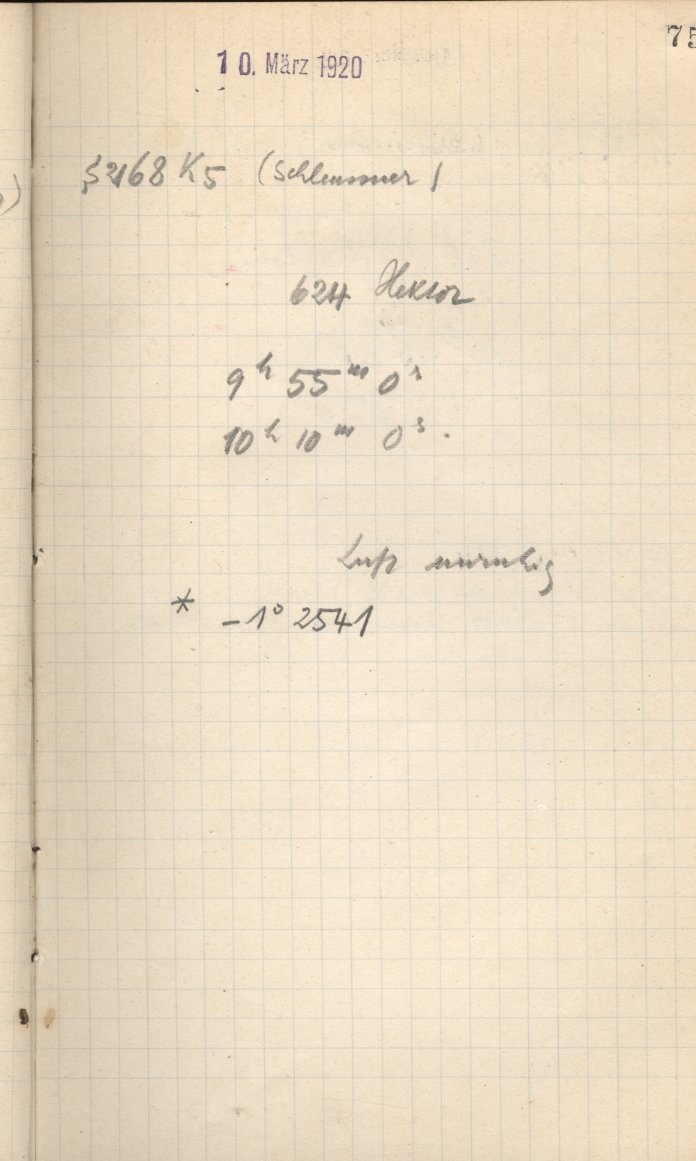 75
10. März 1920
S 2168 K5 (Schleussner)
624 Hektor
9h 55m 0s
10h 10m 0s.
Luft unruhig
* -1° 2541